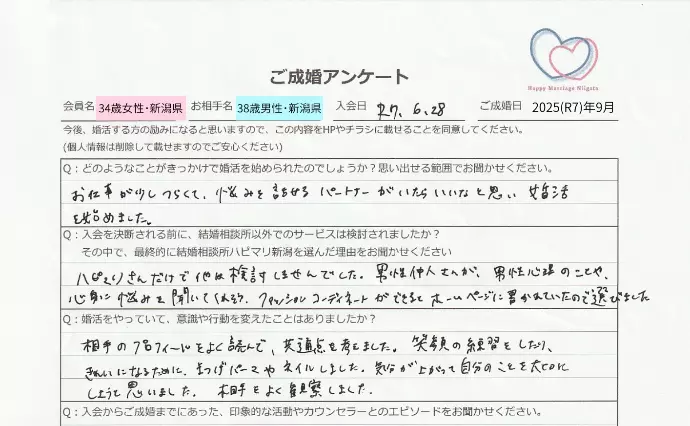 Happy Marriage Niigata
ご成婚アンケート
会員名 34歳女性・新潟県 お相手名 38歳男性・新潟県 入会日 R7.6.28 ご成婚日 2025(R7)年9月
今後、婚活する方の励みになると思いますので、この内容をHPやチラシに載せることを同意してください。
(個人情報は削除して載せますのでご安心ください)
Q：どのようなことがきっかけで婚活を始められたのでしょうか？思い出せる範囲でお聞かせください。
お仕事が少しつらくて、悩みを話せる パートナーがいたらいいなと思い 婚活
を始めました。
Q：入会を決断される前に、結婚相談所以外でのサービスは検討されましたか？
その中で、最終的に結婚相談所ハピマリ新潟を選んだ理由をお聞かせください
ハピマリさんだけで他は検討しませんでした。男性仲人さんが、男性心理のことや、
心身に悩みを聞いてくれそう、ファッションコーディネートができると ホームページに書かれていたので選びました
Q：婚活をやっていて、意識や行動を変えたことはありましたか？
相手のプロフィールをよく読んで、共通点を考えました。笑顔の練習をしたり、
きれいになるために、まつげパーマやネイルしました。気分が上がって自分のことを大切に
しようと思いました。相手をよく観察しました。
Q：入会からご成婚までにあった、印象的な活動やカウンセラーとのエピソードをお聞かせください。